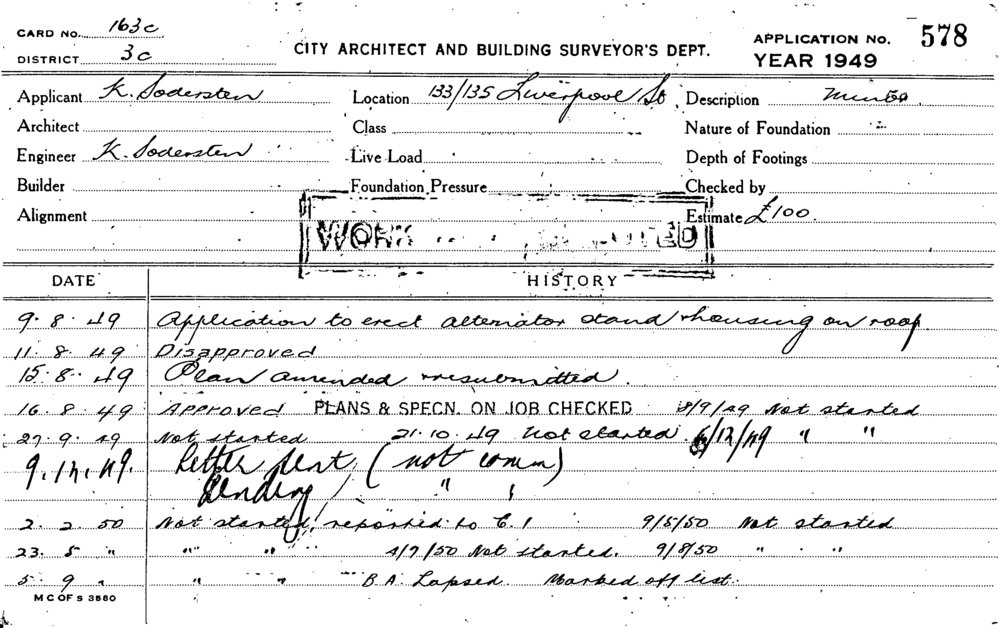 CARD NO. 163c
DISTRICT 3c
CITY ARCHITECT AND BUILDING SURVEYOR'S DEPT.
APPLICATION NO. 578
YEAR 1949
Applicant K. Sodersten
Location 133/135 Liverpool St
Description
Architect
Class
Nature of Foundation
Engineer K. Sodersten
Live Load
Depth of Footings
Builder
Foundation Pressure
Checked by
Alignment
Estimate £100.
WORK
DATE HISTORY
9.8.49 Application to erect alternator stand & housing on roof
11.8.49 Disapproved
15.8.49 Plan amended & resubmitted.
16.8.49 Approved PLANS & SPECN. ON JOB CHECKED 8/9/49 Not started
27.9.49 Not started 21.10.49 Not started 6/12/49 " "
9.12.49. Letter sent (not comm)
Pending " "
2.2.50 Not started, reported to C.I 9/5/50 Not started
23.5 " " " 4/7/50 Not started. 9/8/50 " "
5.9 " " " B.A. Lapsed. Marked off list.
M C OF S 3580